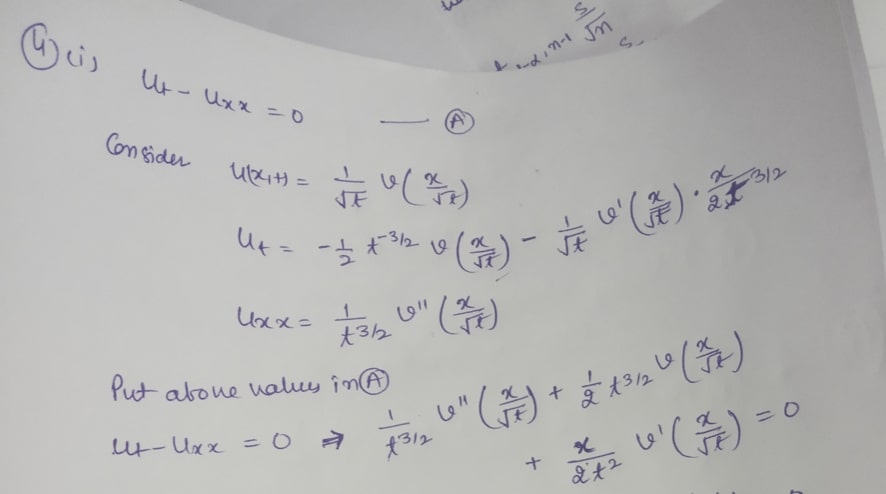 ④ (i)
u_t - u_xx = 0 —— Ⓐ
Consider u(x,t) = 1/√t v(x/√t)
u_t = -1/2 t^-3/2 v(x/√t) - 1/√t v'(x/√t) · x/2t^3/2
u_xx = 1/t^3/2 v''(x/√t)
Put above values in Ⓐ
u_t - u_xx = 0 ⇒ 1/t^3/2 v''(x/√t) + 1/2 t^3/2 v(x/√t)
+ x/2t^2 v'(x/√t) = 0